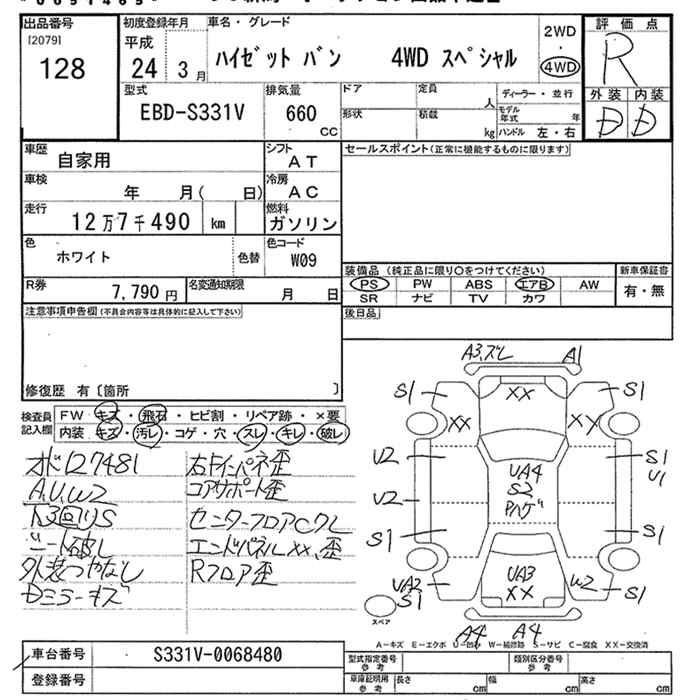 出品番号
[2079]
128
初度登録年月
平成
24 3 月
車名・グレード
ハイゼット バン 4WD スペシャル
2WD
・
4WD
評価点
R
外装 内装
D D
型式
EBD-S331V
排気量
660
CC
ドア
定員
人
形状
積載
kg
ディーラー・並行
モデル年式 年
ハンドル 左・右
車歴
自家用
シフト
AT
車検
年 月( 日)
冷房
AC
走行
12万7千490 km
燃料
ガソリン
色
ホワイト
色替
色コード
W09
R券
7,790 円
名変通知期限
月 日
セールスポイント(正常に機能するものに限ります)
装備品(純正品に限り〇をつけてください)
PS PW ABS エアB AW
SR ナビ TV カワ
新車保証書
有・無
後日品
注意事項申告欄(不具合内容等は具体的に記入して下さい)
修復歴 有〔箇所 〕
検査員記入欄
FW キズ・飛石・ヒビ割・リペア跡・×要
内装 キズ・汚レ・コゲ・穴・スレ・キレ・破レ
オド127481
A.U.W2
下回りS
シート破レ
外装つやなし
Dミラーキズ
右インパネ歪
コアサポート歪
センターフロアCクレ
エンドパネルXX、歪
Rフロア歪
A3,ズレ A1
S1 XX S1
XX XX
U2 S1
UA4 U1
S2
U2 ハゲ
S1 S1
UA2 UA3 W2 S1
S1 XX
スペア
A4 A4
A-キズ E-エクボ U-凹み W-補修跡 S-サビ C-腐食 XX-交換済
車台番号
S331V-0068480
登録番号
型式指定番号 参考
類別区分番号 参考
車庫証明用 参考
長さ cm
幅 cm
高さ cm